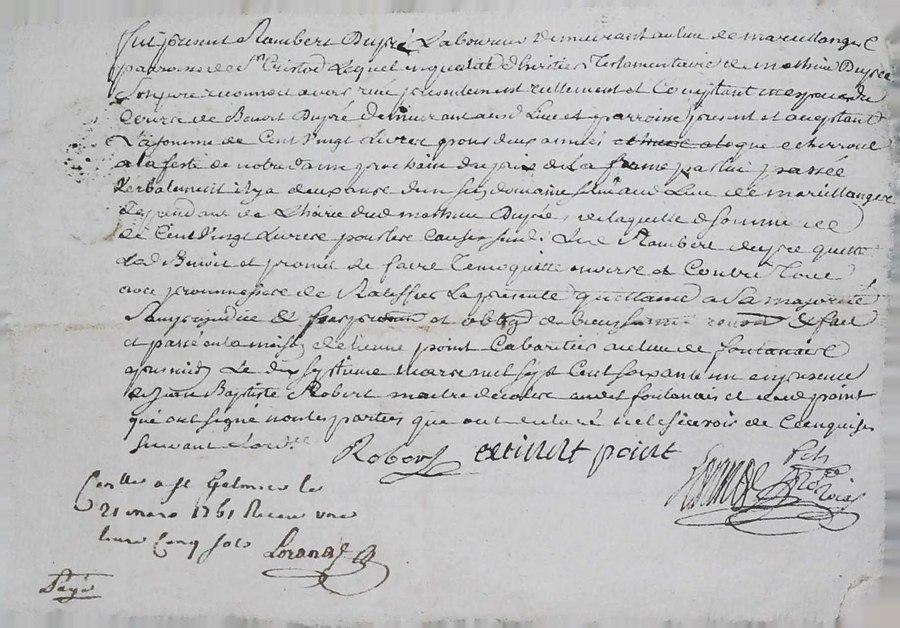 fut present Rambert Dupré Laboureur demeurant au lieu de marcillanges
parroisse de St Cristod Lequel en qualité d'heritier Testamentaire de mathieu Dupré
Son pere reconnoit avoir receu presentement reellement et Comptant
de Benoit Dupré demeurant aud Lieu et parroisse present et aceptant
La somme de Cent Vingt Livres pour deux années que echerront
a la feste de notre dame prochain du prix de La ferme par lui passée
Verbalement il y a d'un sien domaine scitué au Lieu de marcillanges
dependant de L'hoirie dud mathieu Dupré, de laquelle d somme de
de Cent Vingt Livres pour les Causes Led Rambert dupré quitte
Led Benoit et promet de faire Tenir quitte envers et Contre Tous
avec promesse de Ratiffier La presente quittance a Sa majorité
Sans prejudice et oblig de fait
et passé en la maison d'etienne point Cabaretier au lieu de fontanes
apres midy Le dix septieme mars mil sept Cent soixante un en presence
de Jean Baptiste Robert maitre aud fontanes et dud point
qui ont signé non les parties qui ont declaré ne le scavoir de Ce enquises
suivant L'ord
Robert etienent point
Conllé a St Galmier le
21 mars 1761 Receu une
livre Cinq sols
Payé